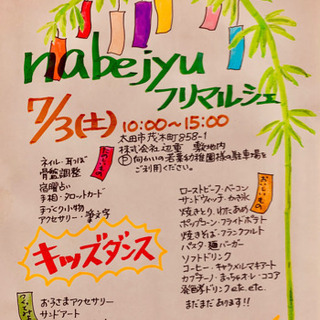 nabejyu
フリマルシェ
7/3(土) 10:00〜15:00
太田市茂木町858-1
株式会社 辺重 敷地内
Ⓟ向かいの若葉幼稚園様の駐車場を
ご利用ください。
ネイル・耳つぼ
骨盤調整
宿曜占い
手相・タロットカード
手づくり小物
アクセサリー・筆文字
おいしいもの
ローストビーフ・ベーコン
サンドウィッチ・かき氷
焼きとり・わたあめ
ポップコーン・フライドポテト
焼きそば・フランクフルト
パスタ・麺バーガー
ソフトドリンク
コーヒー・キャラメルマキアート
カプチーノ・まっちゃオレ・ココア
発酵ドリンク etc. etc.
まだまだあります!!
キッズダンス
お子さまアクセサリー
サンドアート